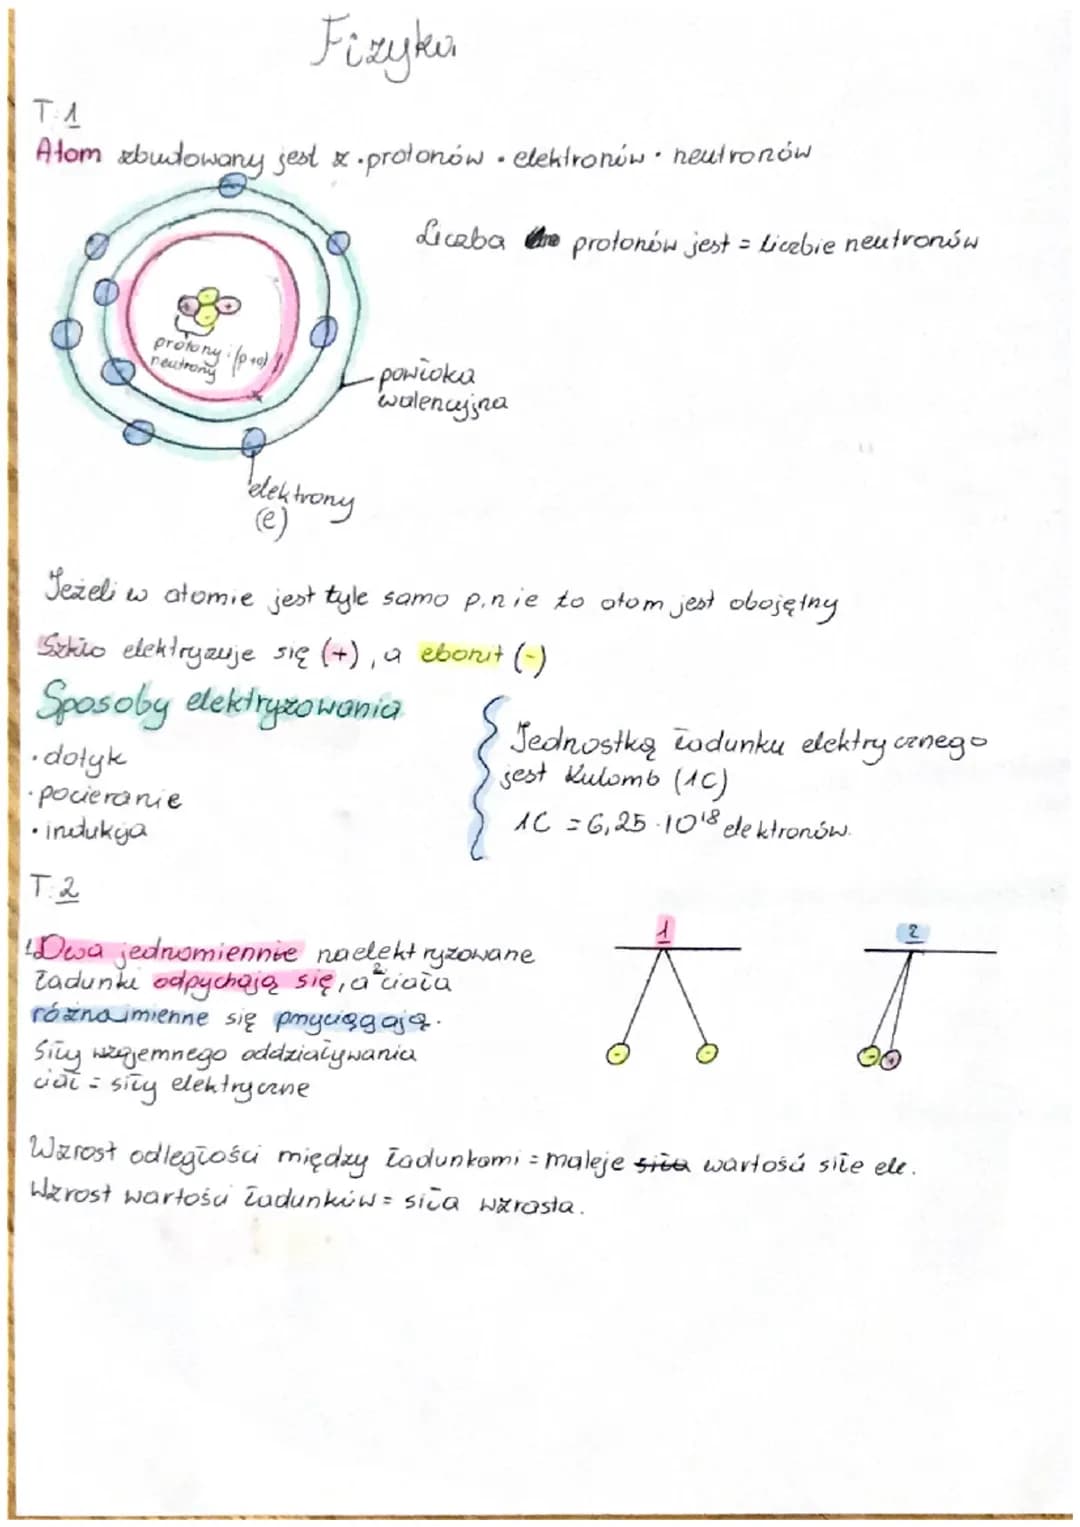 Fizyka
T.1
Atom zbudowany jest z • protonów • elektronów • neutronów
Liczba protonów jest = liczbie neutronów
protony i (p+)
neutrony
powłoka
walencyjna
elektrony
(e)
Jeżeli w atomie jest tyle samo p.n i e to atom jest obojętny
Szkło elektryzuje się (+), a ebonit (-)
Sposoby elektryzowania
• dotyk
• pocieranie
• indukcja
Jednostką ładunku elektrycznego
jest Kulomb (1C)
1C = 6,25 · 10¹⁸ elektronów.
T.2
1. Dwa jednomiennie naelektryzowane
ładunki odpychają się, a ² ciała
róznaimienne się przyciągają.
Siły wzajemnego oddziaływania
ciał = siły elektryczne
1
2
Wzrost odległości między ładunkami = maleje siła wartość siłe ele.
Wzrost wartości ładunków = siła wzrasta.